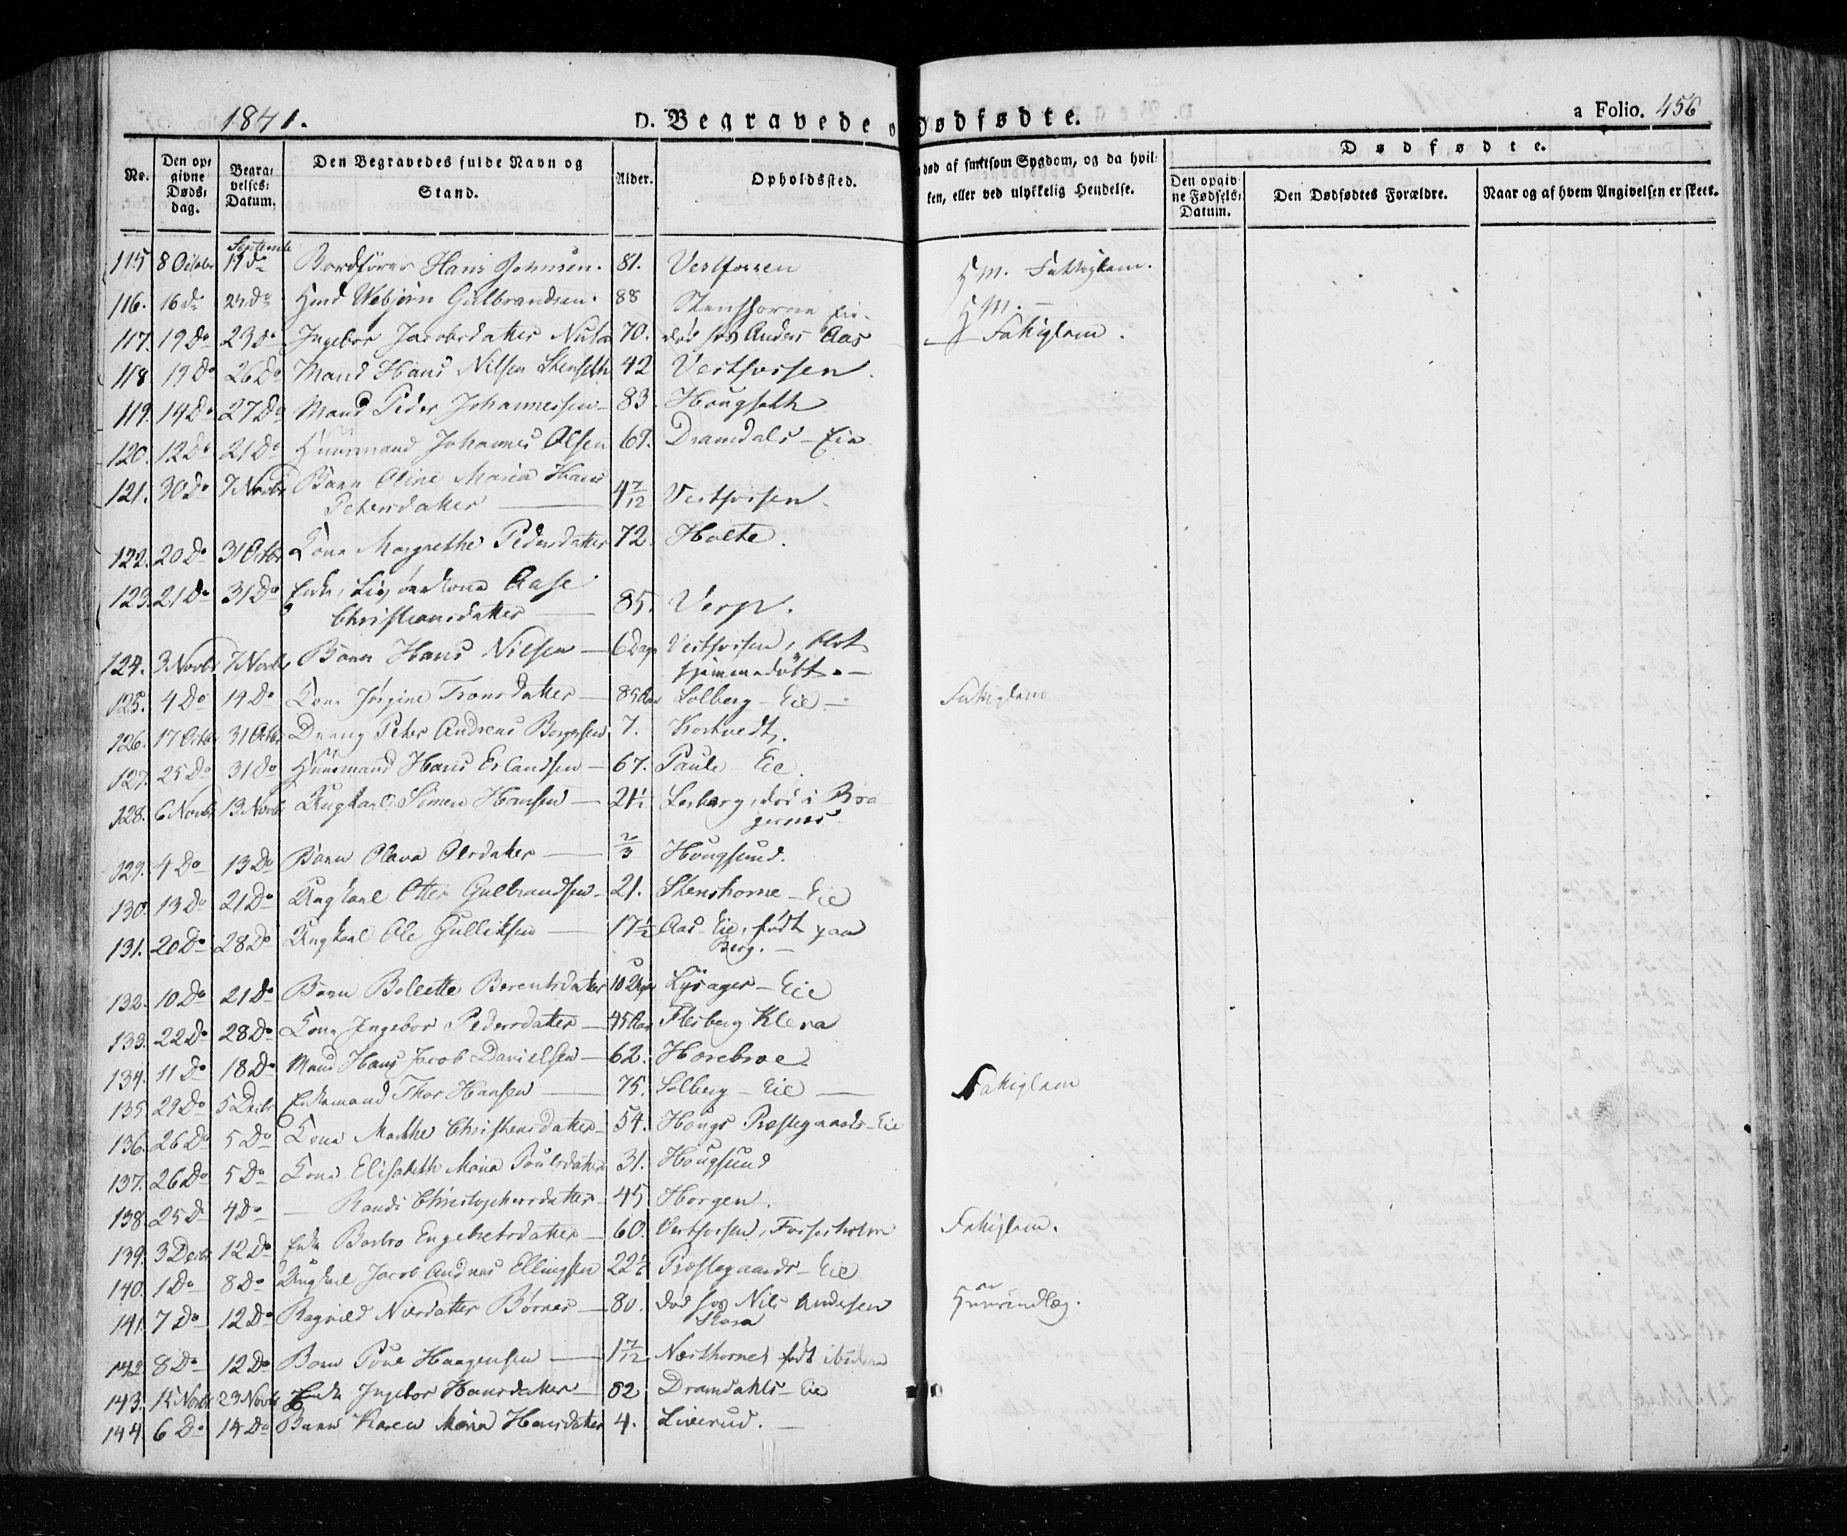 1841.
D. Begravede o
Dødfødte.
a Folio. 456
No.
Den op-
givne
Døds-
dag.
Begra-
velses-
Datum.
Den Begravedes fulde Navn og
Stand.
Alder.
Opholdssted.
død af smitsom Sygdom, og da hvil-
ken, eller ved ulykkelig Hendelse.
Dødfødte.
Den opgiv-
ne Fødsels-
Datum.
Den Dødfødtes Forældre.
Naar og af hvem Angivelsen er skeet.
115 8 October 17 do Hans Johnsen. 81. Vestfossen Fattiglem.
116. 16 D 24 Do Webjörn Gulbrandsen. 88 Stenshorne Eie.
117. 19 Do 23 do Ingebor Jacobsdatter 70. død hos Anders Aas Fattiglem.
118 19 Do 26 Do Mand Hans Nilsen Stenseth 42 Vestfossen.
119. 14 Do 27 Do Mand Peder Johannessen 83. Hougseth
120. 12 Do 21 Do Huusmand Johannes Olsen 69. Dramdals-Eie
121. 30 Do 7 Novbr Barn Oline Maria Hans
Petersdatter 4 7/12 Vestfossen.
122. 20 Do 31 Octbr Kone Margrethe Pedersdatter 72. Holte.
123. 21 Do 31 Do Enke, Aase
Christiansdatter 85. Verp.
124. 3 Novbr 7 Novbr Barn Hans Nilsen 6 Dage Vestfossen, blot
hjemmedöbt.
125. 4 Do 14 Do Kone Jørgine Tronsdatter 85 Aar Solberg-Eie Fattiglem
126. 17 Octbr 31 Octbr Dreng Peter Andreas Borgersen 7. Kortvedt.
127. 25 Do 31 Do Huusmand Hans Erlandsen 67. Paule-Eie.
128. 6 Novbr 13 Novbr Ungkarl Simen Hansen 21½ Losberg, død i Bra
gernes.
129. 4 Do 13 Do Barn Olava Olsdatter 2/3 Hougsund.
130. 13 Do 21 Do Ungkarl Otter Gulbrandsen 21. Stenshorne-Eie
131. 20 Do 28 Do Ungkarl Ole Gulliksen 17½ Aas-Eie, født paa
Berg.
132. 10 Do 21 Do Barn Bolette Berentsdatter 10 Uger Lysager-Eie
133. 22 Do 28 Do Kone Ingebor Pedersdatter 45 Aar Flesberg Kleva
134. 11 Do 18 Do Mand Hans Jacob Danielsen 62. Horebroe
135. 29 Do 5 Decbr Enkemand Thor Hansen 75. Solberg-Eie Fattiglem
136. 26 Do 5 Do Kone Marthe Christensdatter 54. Hougs Præstegaards-Eie
137. 26 Do 5 Do Kone Elisabeth Maria Poulsdatter 31. Hougsund
138. 25 D 4 Do Randi Christophersdatter 45 Horgen.
139. 3 Decbr 12 Do Enke Barbro Engebretsdatter 60. Vestfossen, Fossesholm Fattiglem.
140. 1 Do 8 Do Ungkarl Jacob Andreas Ellingsen 22½ Præstegaards-Eie
141. 7 Do 12 Do Ragnild 80. død hos Nils Andersen
142 8 Do 12 Do Barn Poul Haagensen 1 7/12
143. 15 Novbr 23 Novbr Enke Ingebor Hansdatter 82 Dramdahls-Eie
144. 6 Do 14 Do Barn Karen Maria Hansdatter 4. Liverud.